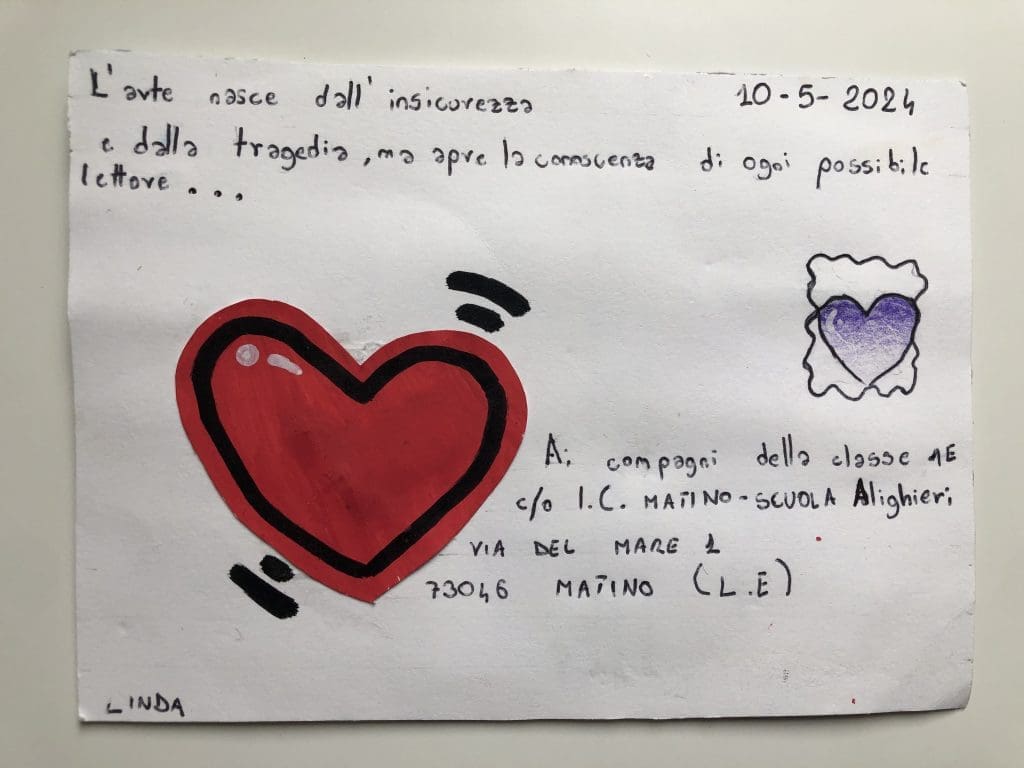 L'arte nasce dall'insicurezza
10-5-2024
e dalla tragedia, ma apre la conoscenza di ogni possibile
lettore...
Ai compagni della classe 1E
c/o I.C. MATINO-SCUOLA Alighieri,
VIA DEL MARE 1
73046 MATINO (L.E)
LINDA